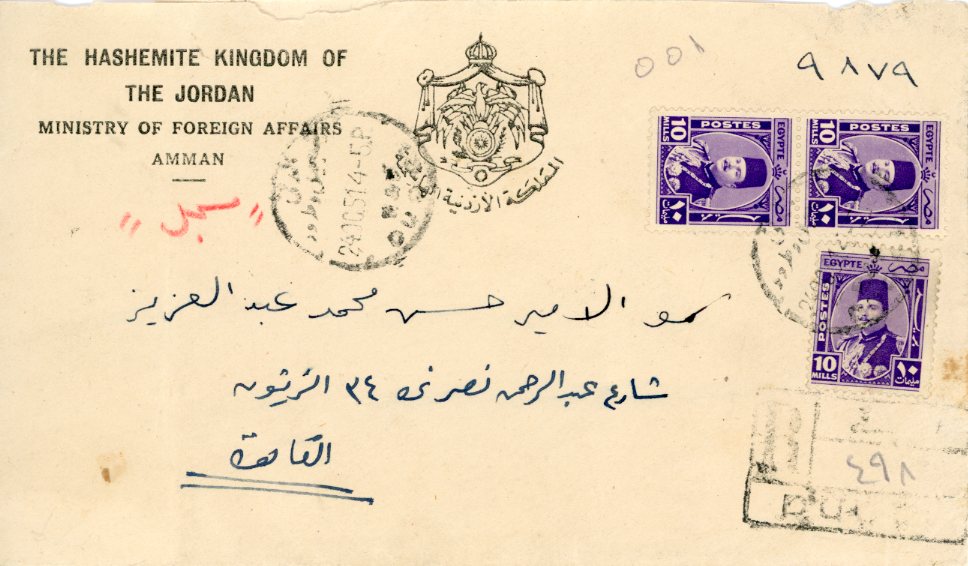 THE HASHEMITE KINGDOM OF
THE JORDAN
MINISTRY OF FOREIGN AFFAIRS
AMMAN
المملكة الأردنية
001
٩٨٧٩
"سجل"
24.OC.51.4-5P
POSTES
EGYPTE
مصر
10 MILLS
١٠ مليمات
POSTES
EGYPTE
مصر
10 MILLS
١٠ مليمات
EGYPTE
مصر
POSTES
10 MILLS
١٠ مليمات
سمو الامير حسن محمد عبد العزيز
شارع عبد الرحمن نصرى ٣٤ الزيتون
القاهرة
R
٤٩٨